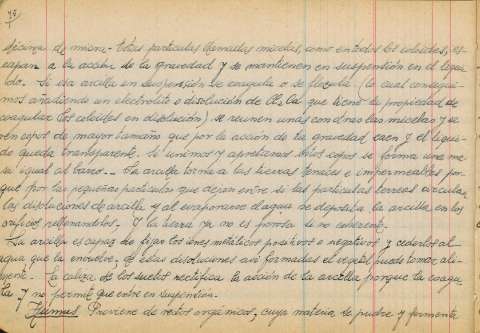 79
décima de micra. Estas partículas llamadas micelas, como en todos los coloides, es-
capan a la acción de la gravedad y se mantienen en suspensión en el líqui-
do. Si esa arcilla en suspensión se coagula o se flocula (lo cual consegui-
mos añadiendo un electrolito o disolución de Cl2Ca que tiene la propiedad de
coagular los coloides en disolución) se reunen unas con otras las micelas y se
ven copos de mayor tamaño que por la acción de la gravedad caen y el líqui-
do queda transparente. Si unimos y apretamos estos copos se forma una ma-
sa igual al barro. La arcilla torna a las tierras tenaces e impermeables por-
que por las pequeñas partículas que dejan entre sí las partículas terreas circulan
las disoluciones de arcilla y al evaporarse el agua se deposita la arcilla en los
orificios rellenandolos. Y la tierra ya no es porosa si no coherente.
La arcilla es capaz de fijar los iones metálicos positivos o negativos y cederlos al
agua que la envuelve, de estas disoluciones así formadas el vegetal puede tomar ali-
mento. La caliza de los suelos rectifica la acción de la arcilla porque la coagu-
la y no permite que entre en suspensión.
Humus Proviene de restos orgánicos, cuya materia se pudre y fermenta